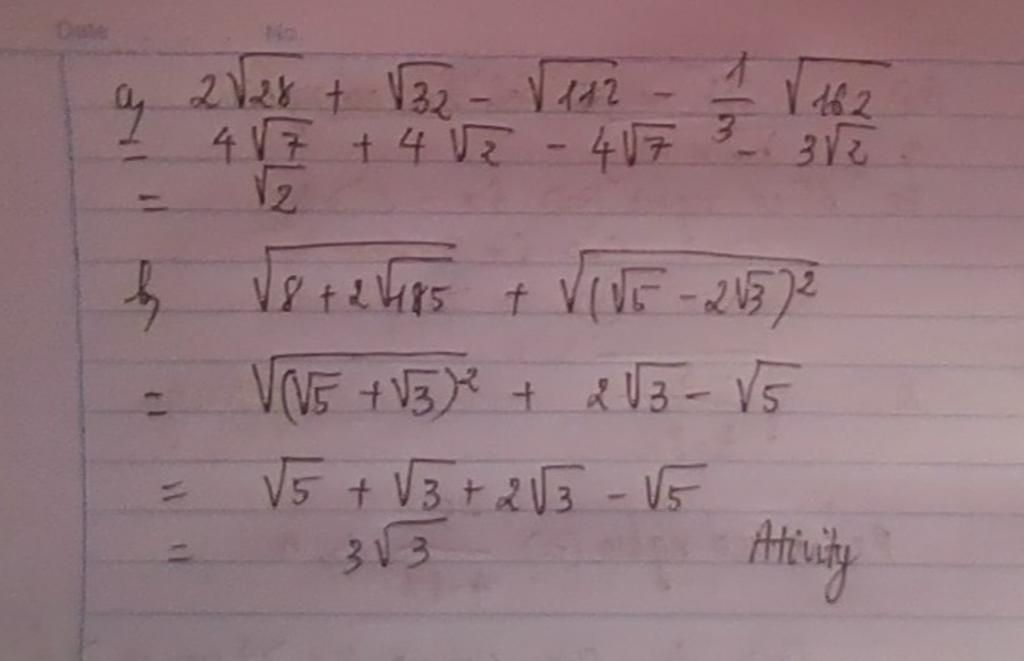 Date No.
a, 2√28 + √32 - √112 - 1/3 √162
= 4√7 + 4√2 - 4√7 - 3√2
= √2
b, √(8 + 2√15) + √((√5 - 2√3)²)
= √((√5 + √3)²) + 2√3 - √5
= √5 + √3 + 2√3 - √5
= 3√3 Ativity